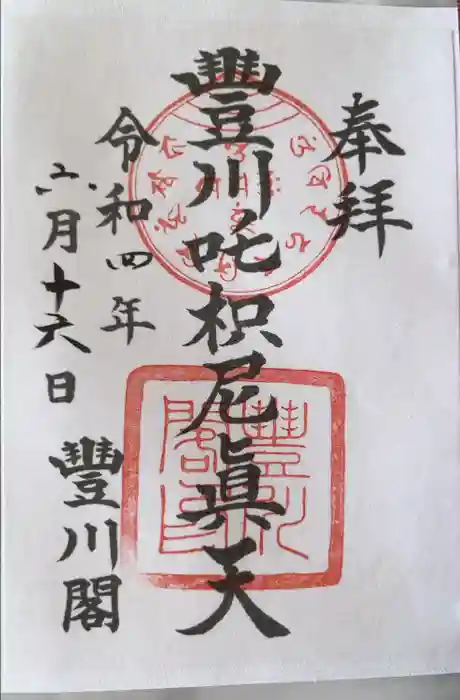 奉拜
豐川吒枳尼眞天
令和四年
六月十六日
豐川閣
豐川
閣印